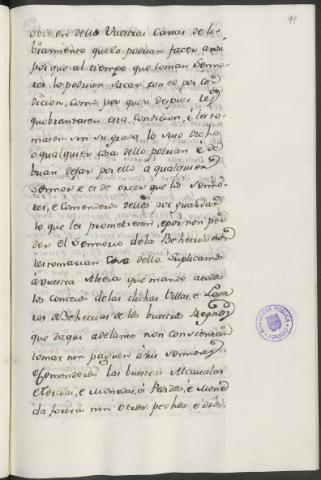 91
obieren dello Vuestras Cartas de li-
bramiento que lo podrian facer ansi
por que al tiempo que toman Senno-
res lo podrian sacar con el por con
dicion, como por quien despues les
quebrantaren esta condicion, e les to-
masen sin su grado lo suio dicho
o qualquier cosa dello podrian é de-
bian dejar por ello a qualquier
Sennor e es de creer que los Senno-
res, e Comenderos dellos por guardar
lo que les prometieron, e por non per
der el Sennorio de la Behetria non
les tomarian cosa dello Suplicamos
á vuestra Altesa que mande a todos
los concejos de las dichas Villas, e Luga
res de Behetrias de los vuestros Regnos
que daqui adelante non consientan
tomar nin paguen á sus Sennores
e Comenderos las vuestras Alcavalas
e Tercias, e Monedas, é Pedido, é Mone
da forera nin otros pechos é dros
BIBLIOTECA PUBLICA
TOLEDO